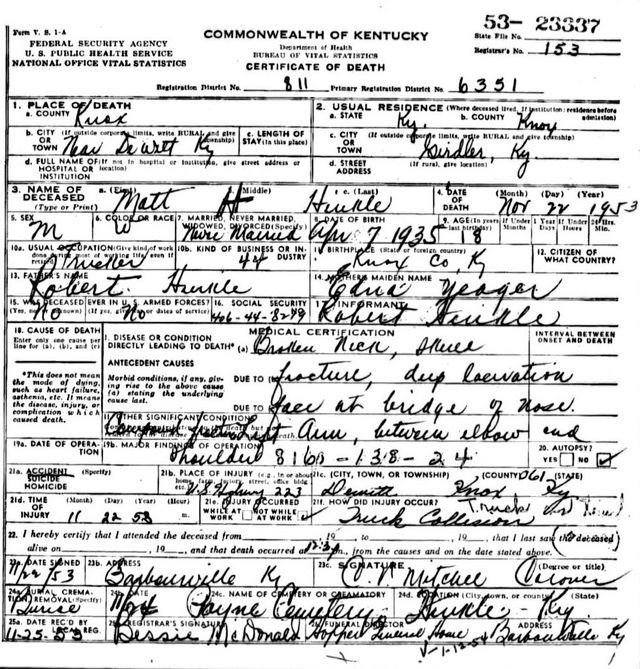 Form V. S. 1-A
FEDERAL SECURITY AGENCY
U. S. PUBLIC HEALTH SERVICE
NATIONAL OFFICE VITAL STATISTICS
COMMONWEALTH OF KENTUCKY
Department of Health
BUREAU OF VITAL STATISTICS
CERTIFICATE OF DEATH
State File No. 53-23337
Registrar's No. 153
Registration District No. 811 Primary Registration District No. 6351
1. PLACE OF DEATH
a. COUNTY Knox
2. USUAL RESIDENCE (Where deceased lived. If institution: residence before admission)
a. STATE Ky. b. COUNTY Knox
b. CITY (If outside corporate limits, write RURAL and give township)
OR TOWN Near Dewitt Ky
c. LENGTH OF STAY (in this place)
c. CITY (If outside corporate limits, write RURAL and give township)
OR TOWN Girdler, Ky.
d. FULL NAME OF (If not in hospital or institution, give street address or location)
HOSPITAL OR INSTITUTION
d. STREET ADDRESS (If rural, give location)
3. NAME OF DECEASED (Type or Print)
a. (First) Matt b. (Middle) H c. (Last) Hinkle
4. DATE OF DEATH (Month) (Day) (Year) Nov 22 1953
5. SEX M
6. COLOR OR RACE W
7. MARRIED, NEVER MARRIED, WIDOWED, DIVORCED (Specify) Never Married
8. DATE OF BIRTH Apr 7 1935
9. AGE (In years last birthday) 18
10a. USUAL OCCUPATION (Give kind of work done during most of working life, even if retired) Trucker
10b. KIND OF BUSINESS OR INDUSTRY 44
11. BIRTHPLACE (State or foreign country) Knox Co, Ky
12. CITIZEN OF WHAT COUNTRY?
13. FATHER'S NAME Robert Hinkle
14. MOTHER'S MAIDEN NAME Edna Yeager
15. WAS DECEASED EVER IN U. S. ARMED FORCES? No No
16. SOCIAL SECURITY
17. INFORMANT Robert Hinkle
18. CAUSE OF DEATH
Enter only one cause per line for (a), (b), and (c)
MEDICAL CERTIFICATION
INTERVAL BETWEEN ONSET AND DEATH
I. DISEASE OR CONDITION
DIRECTLY LEADING TO DEATH* (a) Broken Neck, skull
*This does not mean the mode of dying, such as heart failure, asthenia, etc. It means the disease, injury, or complication which caused death.
ANTECEDENT CAUSES
Morbid conditions, if any, giving rise to the above cause (a) stating the underlying cause last.
DUE TO fracture, deep laceration
DUE TO face at bridge of nose.
II. OTHER SIGNIFICANT CONDITIONS
Left Arm, between elbow and
19a. DATE OF OPERATION
19b. MAJOR FINDINGS OF OPERATION
Shoulder 8160-138-24
20. AUTOPSY?
YES NO
21a. ACCIDENT SUICIDE HOMICIDE (Specify)
21b. PLACE OF INJURY (e.g., in or about home, farm, factory, street, office bldg., etc.) 223
21c. (CITY, TOWN, OR TOWNSHIP) (COUNTY) (STATE) 061
Dewitt Knox Ky
21d. TIME OF INJURY (Month) (Day) (Year) (Hour) 11 22 53
21e. INJURY OCCURRED
WHILE AT WORK NOT WHILE AT WORK
21f. HOW DID INJURY OCCUR?
Truck Collision
22. I hereby certify that I attended the deceased from , 19 , to , 19 , that I last saw the deceased
alive on , 19 , and that death occurred at m., from the causes and on the date stated above.
23a. DATE SIGNED 53
23b. ADDRESS Barbourville Ky
23c. SIGNATURE (Degree or title) Mitchell Coroner
24a. BURIAL, CREMATION, REMOVAL (Specify)
24c. NAME OF CEMETERY OR CREMATORY Payne Cemetery
24d. LOCATION (City, town, or county) (State) Hinkle - Ky
25a. DATE REC'D BY LOCAL REG. 11-25-53
25b. REGISTRAR'S SIGNATURE Bessie McDonald
26. FUNERAL DIRECTOR Hopper Funeral Home
ADDRESS Barbourville Ky